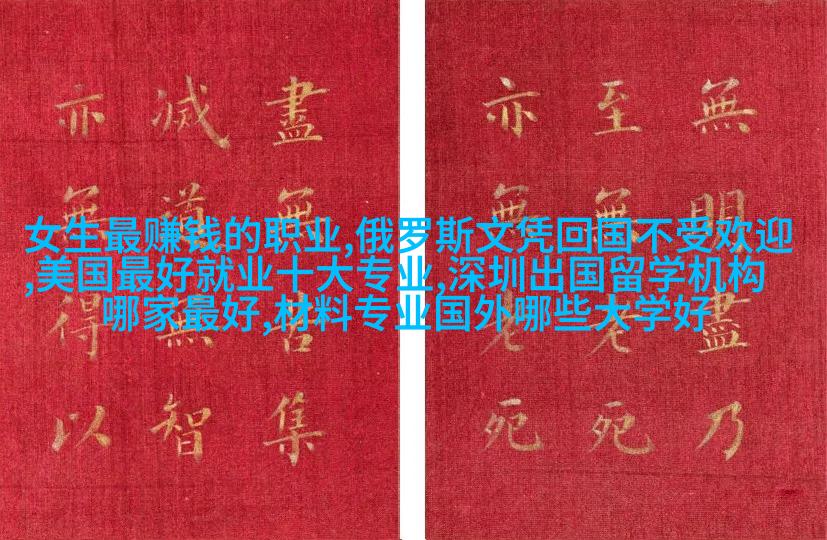 無明盡乃
至無老死
亦無老死
盡無苦集
滅道無智
亦無得以
女生最赚钱的职业,俄罗斯文凭回国不受欢迎
,美国最好就业十大专业,深圳出国留学机构
哪家最好,材料专业国外哪些大学好